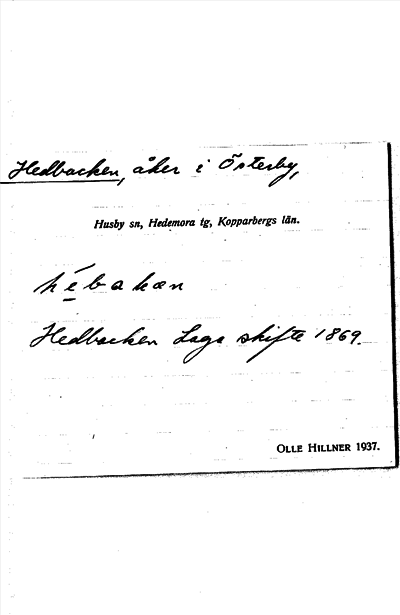 Hedbacken, åker i Österby,
Husby sn, Hedemora tg, Kopparbergs län.
hé̱bakæn
Hedbacken Laga skifte 1869.
OLLE HILLNER 1937.